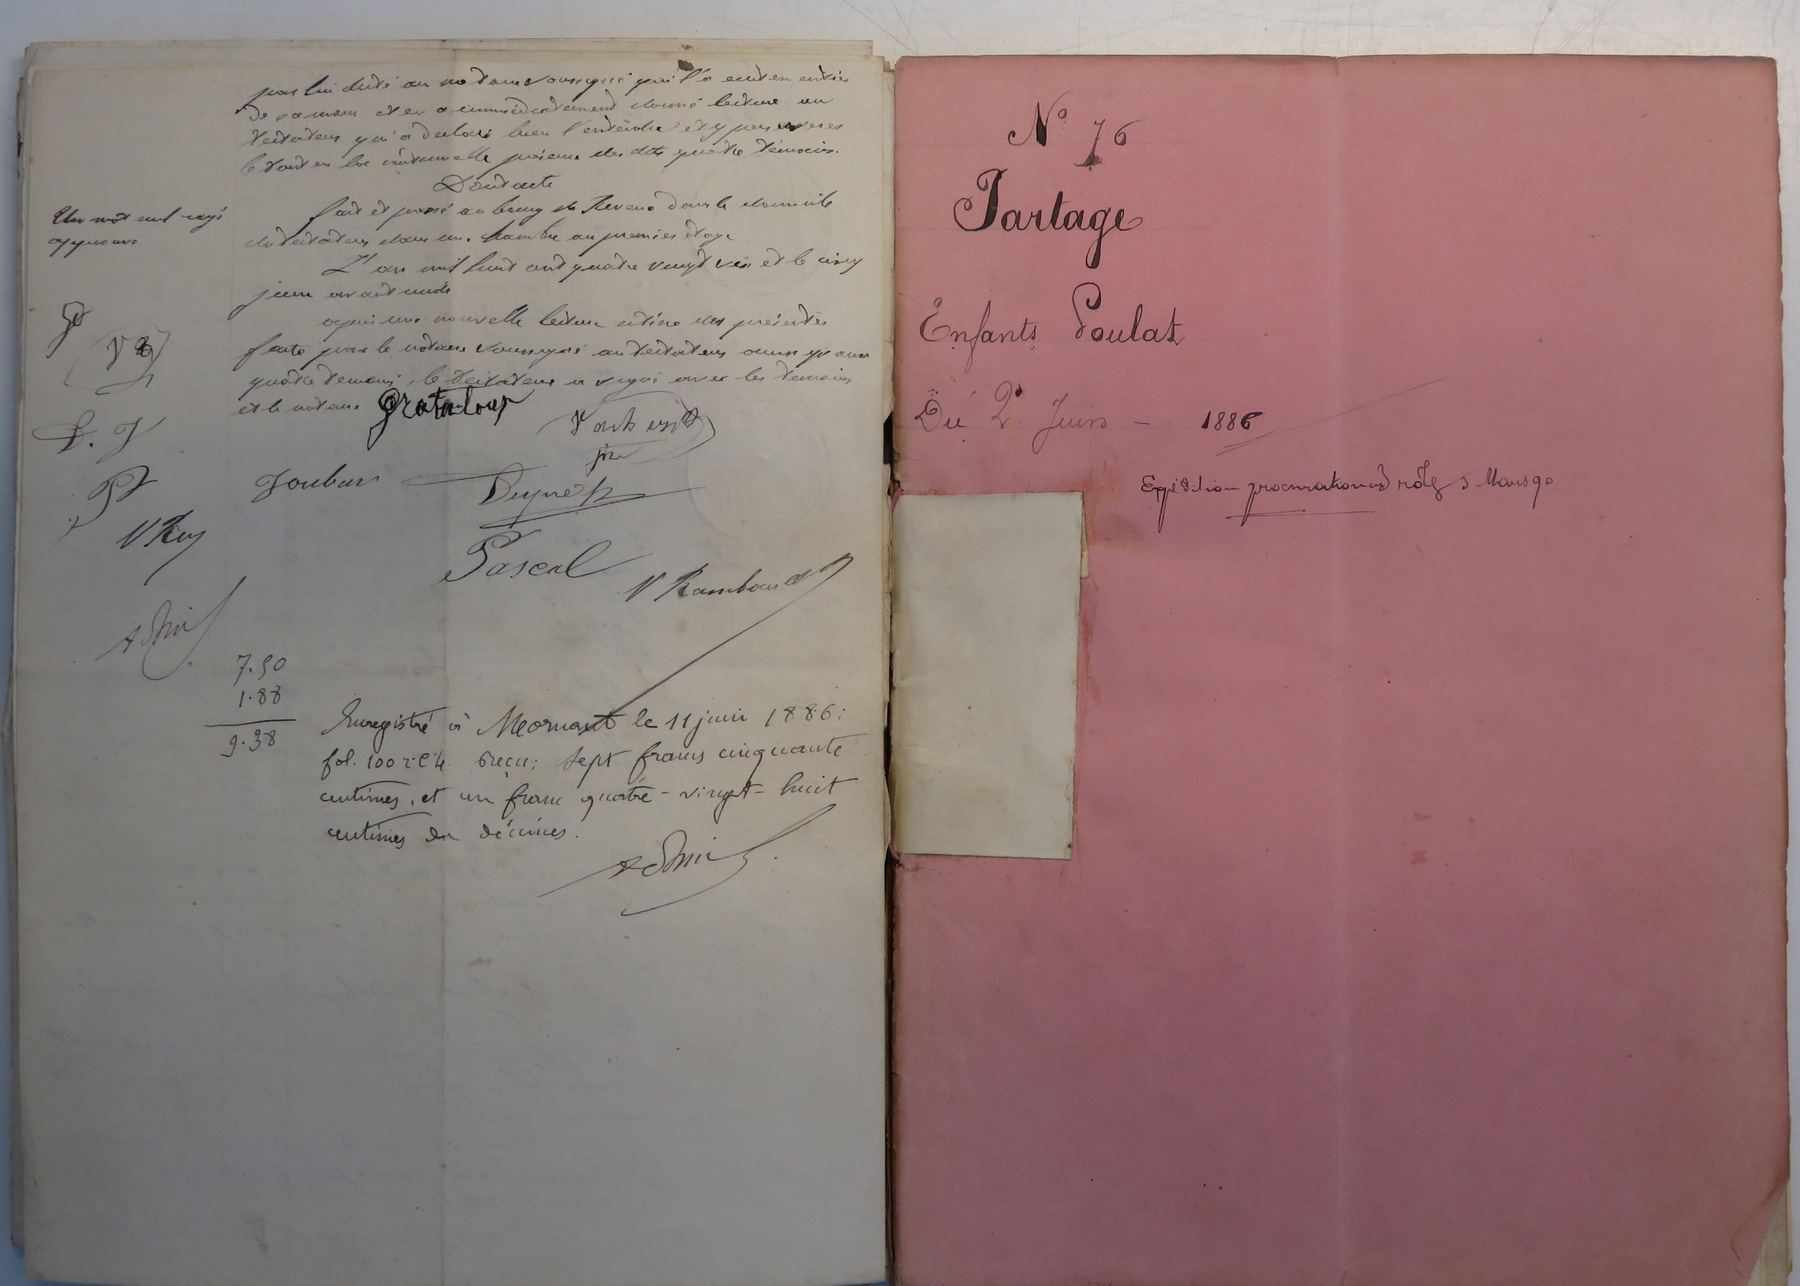 par lui dicté au notaire soussigné qui l'a écrit en entier
de sa main et en a immédiatement donné lecture au
testateur qui a déclaré bien l'entendre et y persévérer
le tout en la continuelle présence des dits quatre témoins.
Dont acte
Un mot nul rayé
approuvé
fait et passé au bourg de dans le domicile
du testateur dans une chambre au premier étage
L'an mil huit cent quatre vingt six et le cinq
juin avant midi
après une nouvelle lecture entière des présentes
faite par le notaire soussigné au testateur ainsi qu'aux
quatre témoins, le testateur a signé avec les témoins
et le notaire Grataloup
Joubert
Peyret
V Ray
Pascal
V Rambaud
7.50
1.88
9.38
Enregistré à Mornant le 11 juin 1886:
fol. 100 r. C 4. Reçu: sept francs cinquante
centimes, et un franc quatre-vingt-huit
centimes en décimes.
N° 76
Partage
Enfants Poulat
Du 2 Juin - 1886
Expédition procuration rôles 5 Mars 90